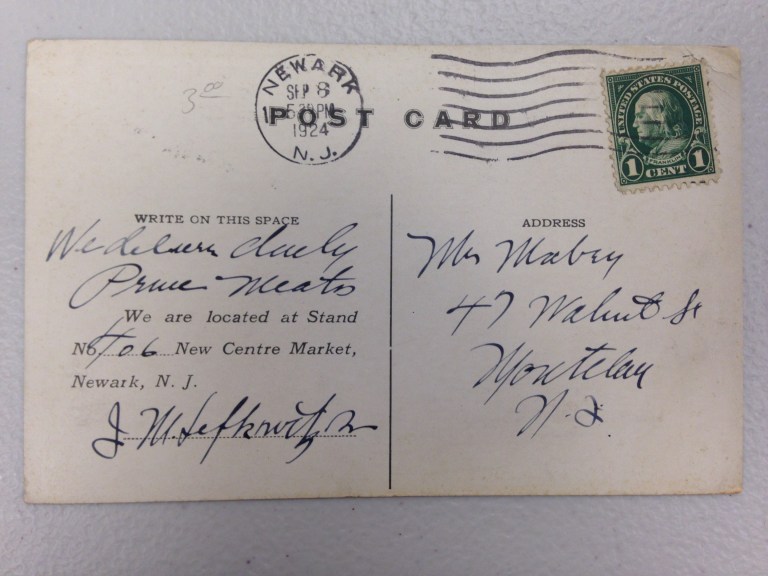 3⁰⁰
NEWARK
SEP 8
5 30 PM
1924
N. J.
POST CARD
UNITED STATES POSTAGE
FRANKLIN
1 CENT 1
WRITE ON THIS SPACE
We deliver daily
Prime Meats
We are located at Stand
No. 406 New Centre Market,
Newark, N. J.
J M
ADDRESS
Mrs Mabey
47 Walnut St
Montclair
N. J